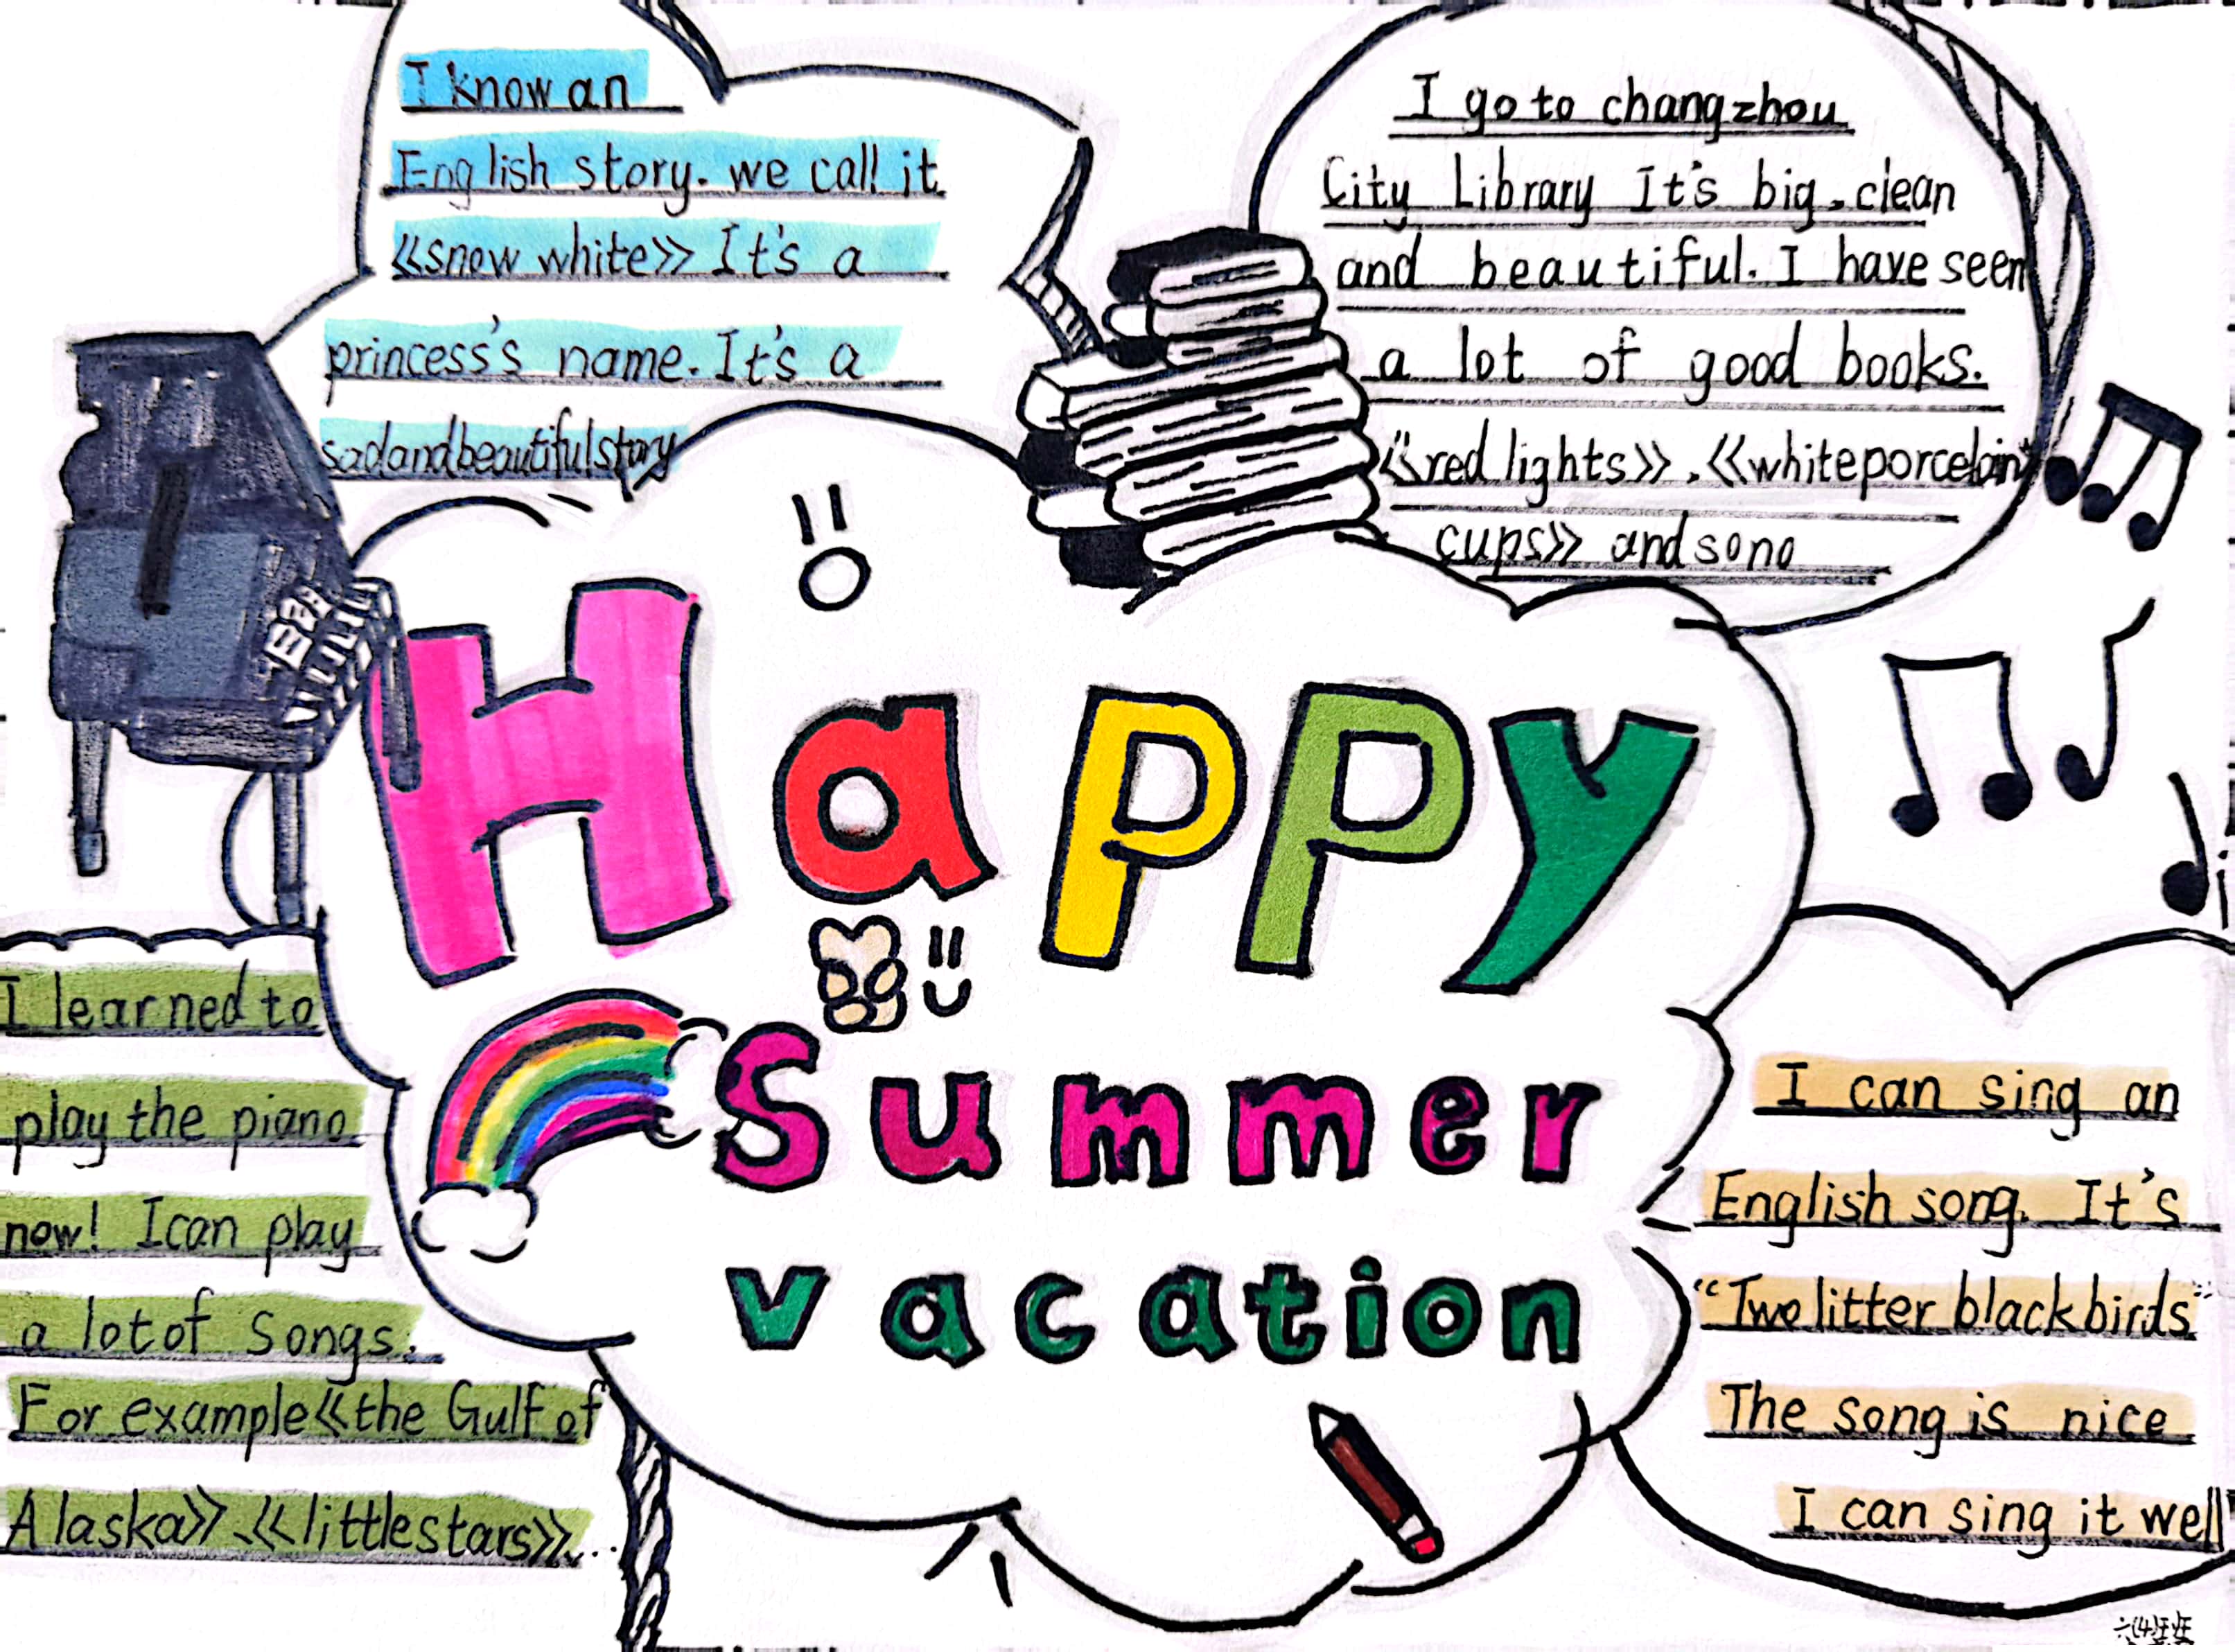 I know an
English story. we call it
《snow white》 It's a
princess's name. It's a
sadandbeautifulstory
I go to changzhou
City Library It's big, clean
and beautiful. I have seen
a lot of good books.
《red lights》,《whiteporcelain
cups》 andsono
Happy
Summer
vacation
I learned to
play the piano
now! Ican play
a lotof songs.
For example《the Gulf of
Alaska》、《littlestars》...
I can sing an
English song. It's
“Two litter blackbirds”
The song is nice
I can sing it well